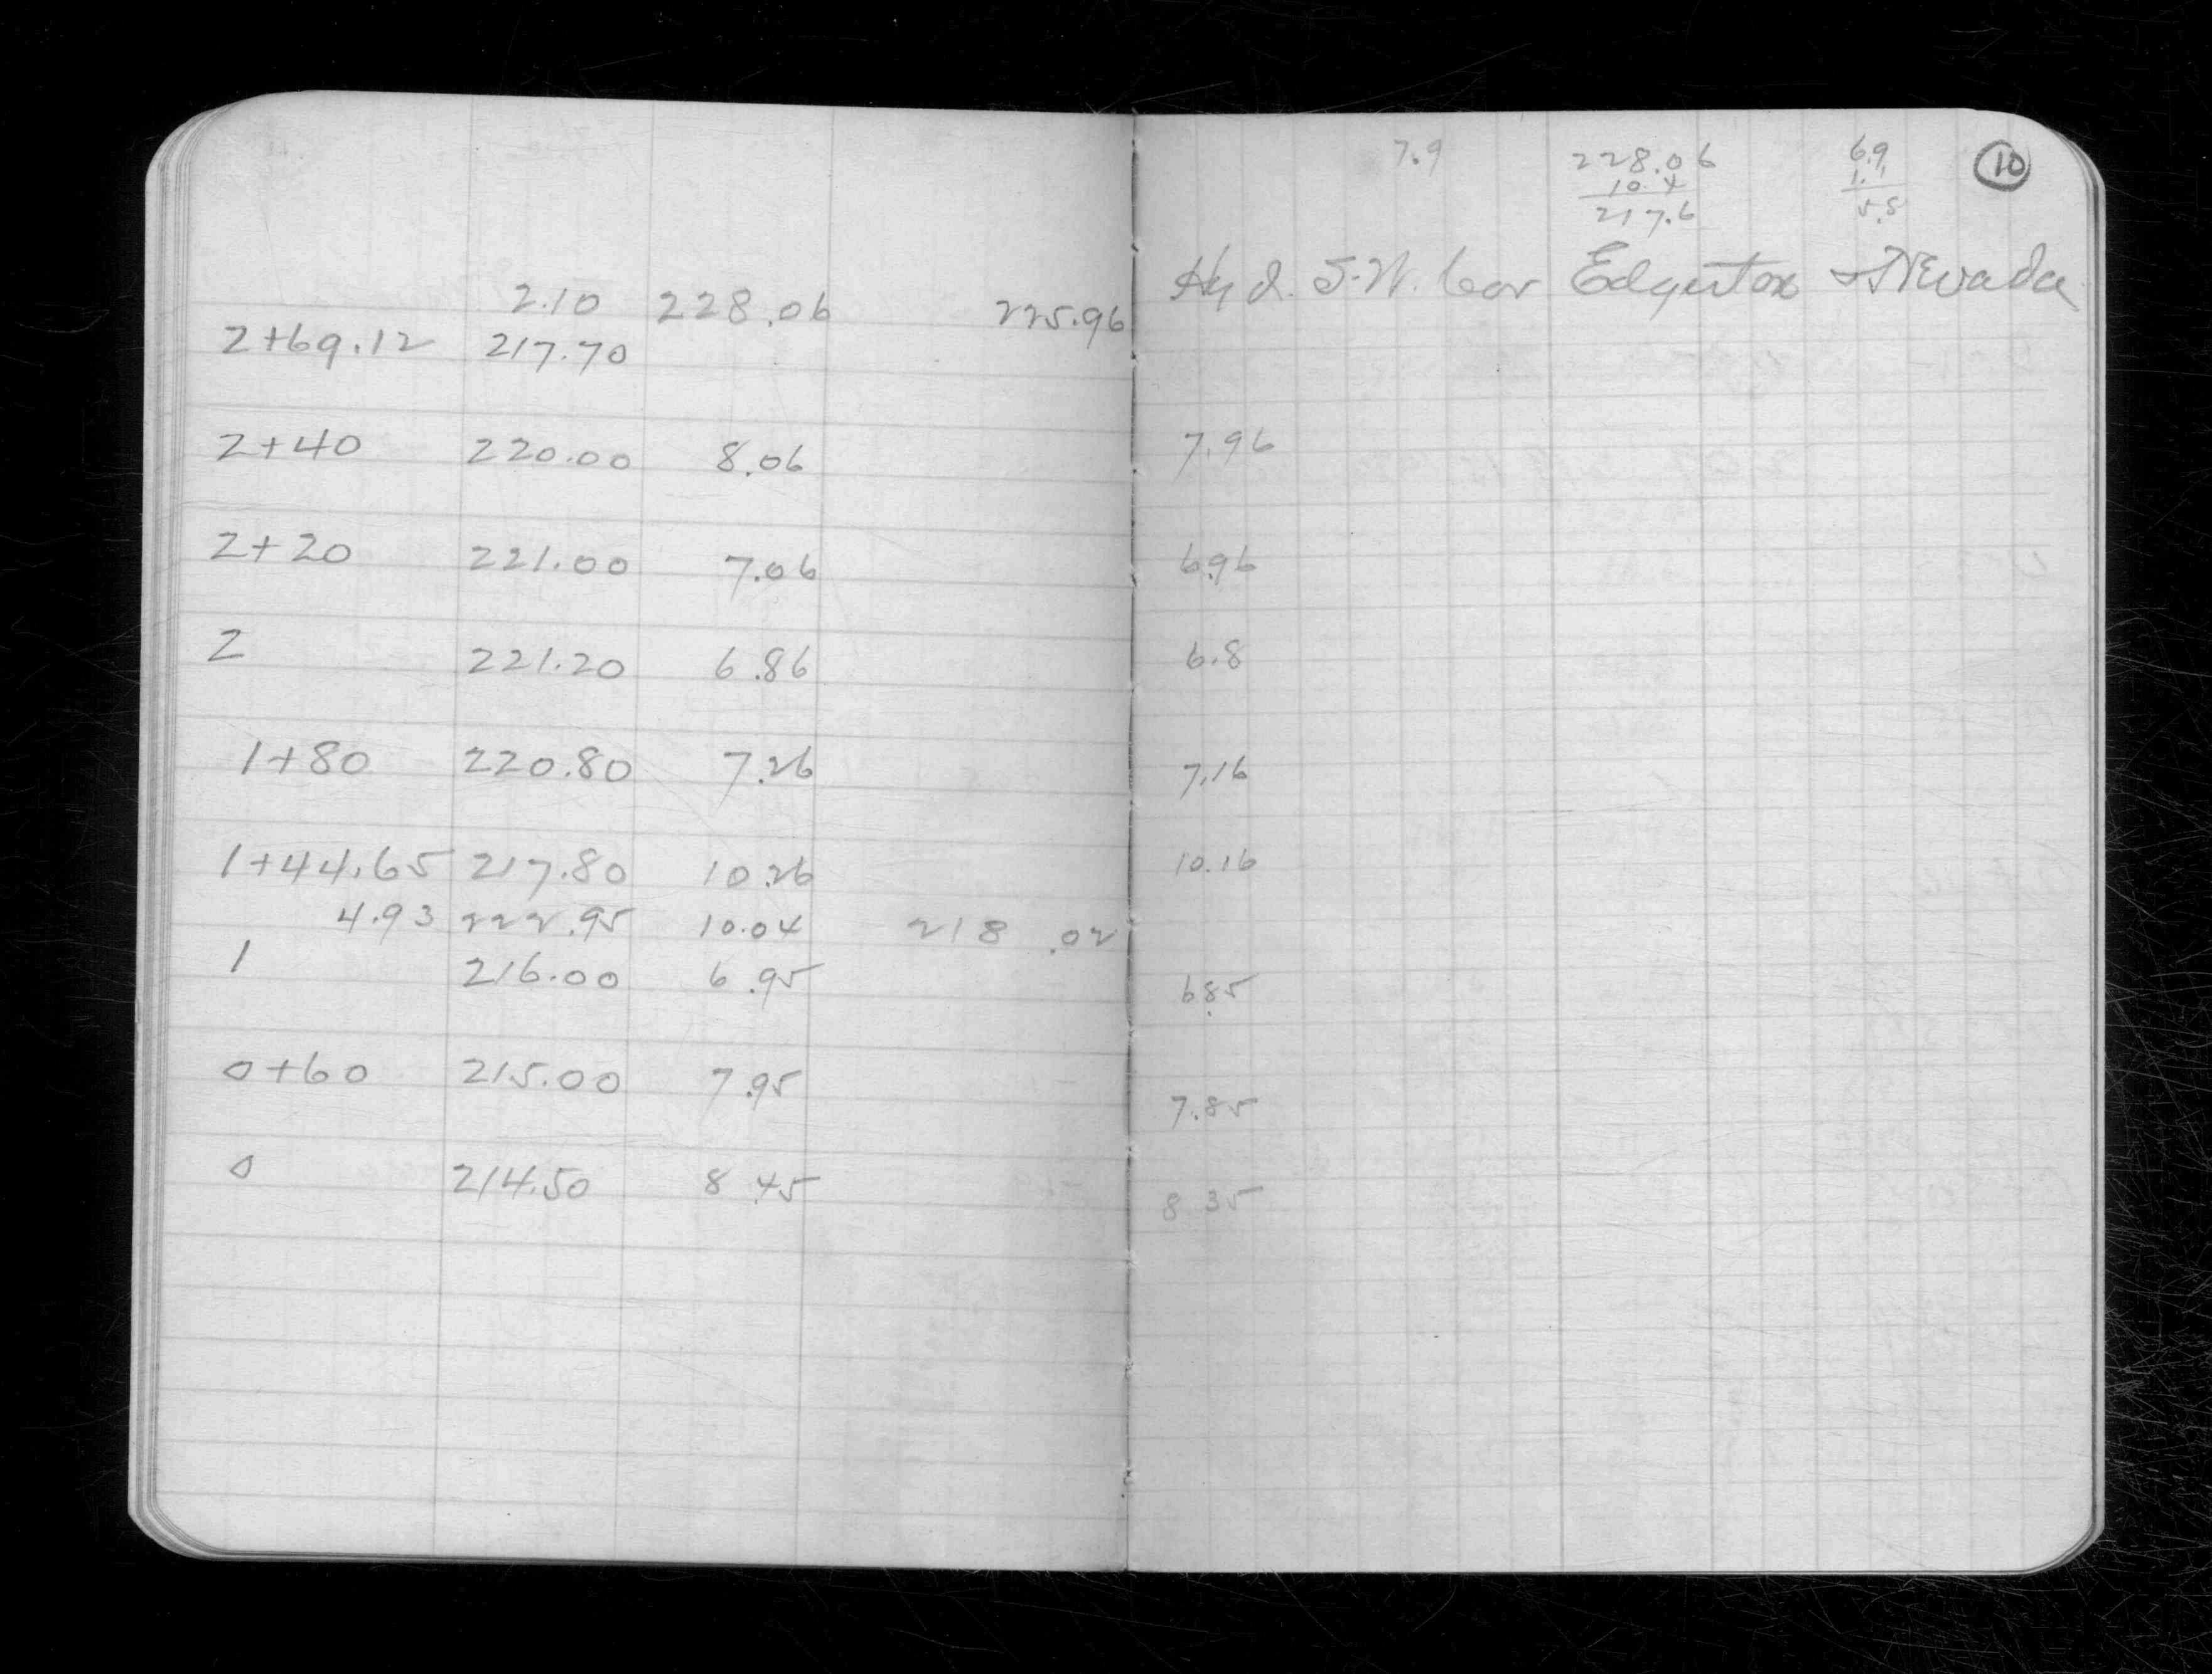 7.9 228.06 6.9 10
10.4 1.1
217.6 5.8
2.10 228.06 225.96 Hyd. S.W. Cor Edgerton + Nevada
2+69.12 217.70
2+40 220.00 8.06 7.96
2+20 221.00 7.06 6.96
2 221.20 6.86 6.8
1+80 220.80 7.26 7.16
1+44.65 217.80 10.26 10.16
4.93 222.95 10.04 218.02
1 216.00 6.95 6.85
0+60 215.00 7.95 7.85
0 214.50 8.45 8.35